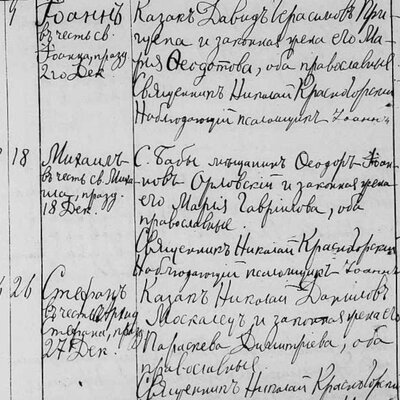 Іоаннъ
въ честь св.
Іоанна, празд.
2го Дек.
Казакъ Давидъ Герасимовъ При-
щепа и законная жена его Ма-
рія Ѳеодотова, оба православные
Священникъ Николай Краснопорский
Наблюдающій псаломщикъ Іоаннъ
18
Михаилъ
въ честь св. Миха-
ила, празд.
18 Дек.
С. Бабы мѣщанинъ Ѳеодоръ Іоан-
новъ Орловскій и законная жена
его Марія Гавріилова, оба
православные
Священникъ Николай Краснопорский
Наблюдающій псаломщикъ Іоаннъ
26
Стефанъ
въ честь
Стефана, празд.
27 Дек.
Казакъ Николай Даниловъ
Москалецъ и законная жена его
Параскева Димитріева, оба
православные
Священникъ Николай